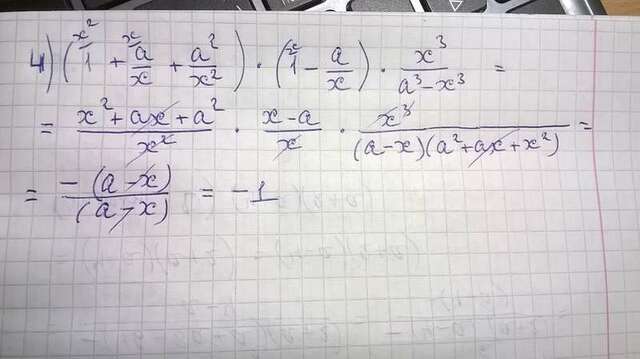 4) (1 + a/x + a²/x²) · (1 - a/x) · x³/(a³ - x³) =
= (x² + ax + a²)/x² · (x - a)/x · x³/((a - x)(a² + ax + x²)) =
= -(a - x)/(a - x) = -1